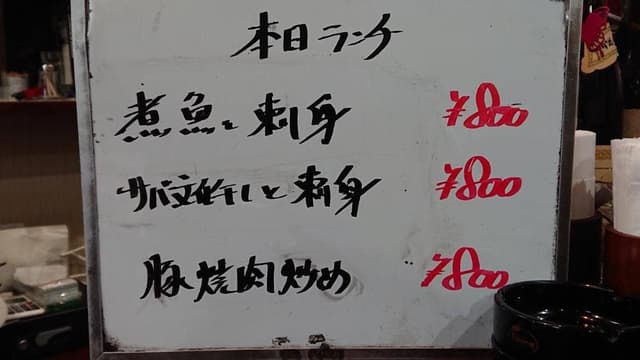 本日ランチ
煮魚と刺身 ¥800
サバ文化干しと刺身 ¥800
豚焼肉炒め ¥800